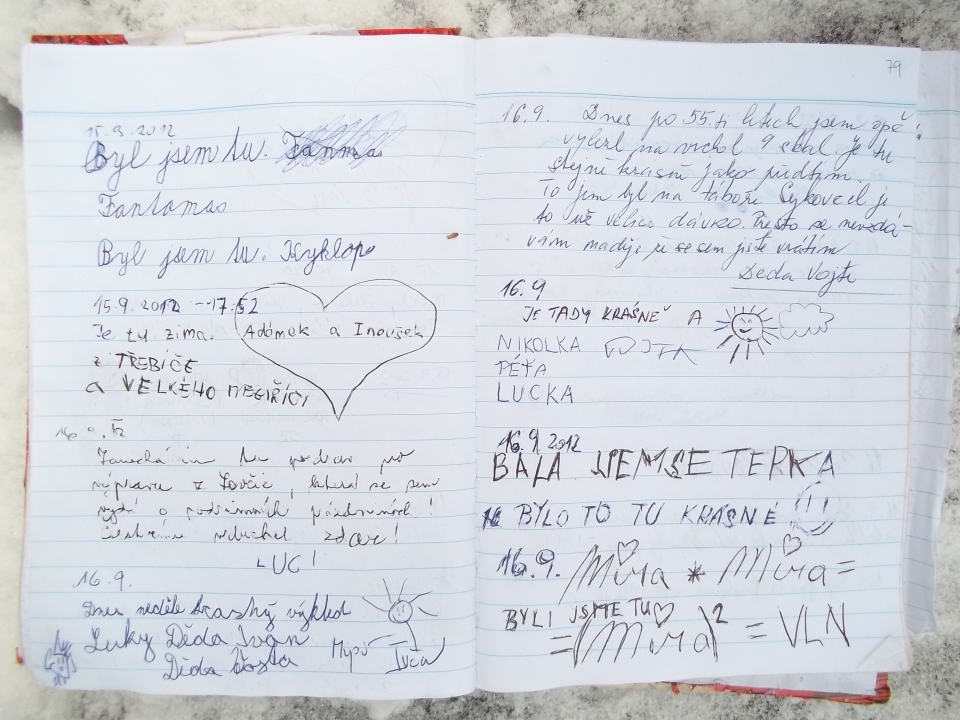 15.9.2012
Byl jsem tu. Fanmas
Fantomas
Byl jsem tu. Kyklop
15.9.2012 -- 17:52
Je tu zima. Adámek a Inoušek
z TŘEBÍČE
a VELKÉHO MEGIŘÍČÍ
16.9.12
pozdrav pro
výpravu z , která se sem
o podzimních prázdninách!
zdar!
LUC!
16.9.
Dnes neděle krasný výhled
Luky Děda Ivan
Děda Kosta
Ivča
79
16.9. Dnes po 55.ti letech jsem opě
vylezl na vrchol 9 skal. Je tu
stejně krásně jako předtým.
To jsem byl na táboře Sykovec je
to už velice dávno. Přesto se nevzdá-
vám naděje že se sem ještě vrátím
Děda Vojta
16.9
JE TADY KRÁSNĚ A
NIKOLKA VOJTA
PÉŤA
LUCKA
16.9.2012
BÁLA JSEM SE TERKA
BYLO TO TU KRÁSNÉ
16.9. Míra * Míra =
BYLI JSME TU
=(Míra)² = VLN